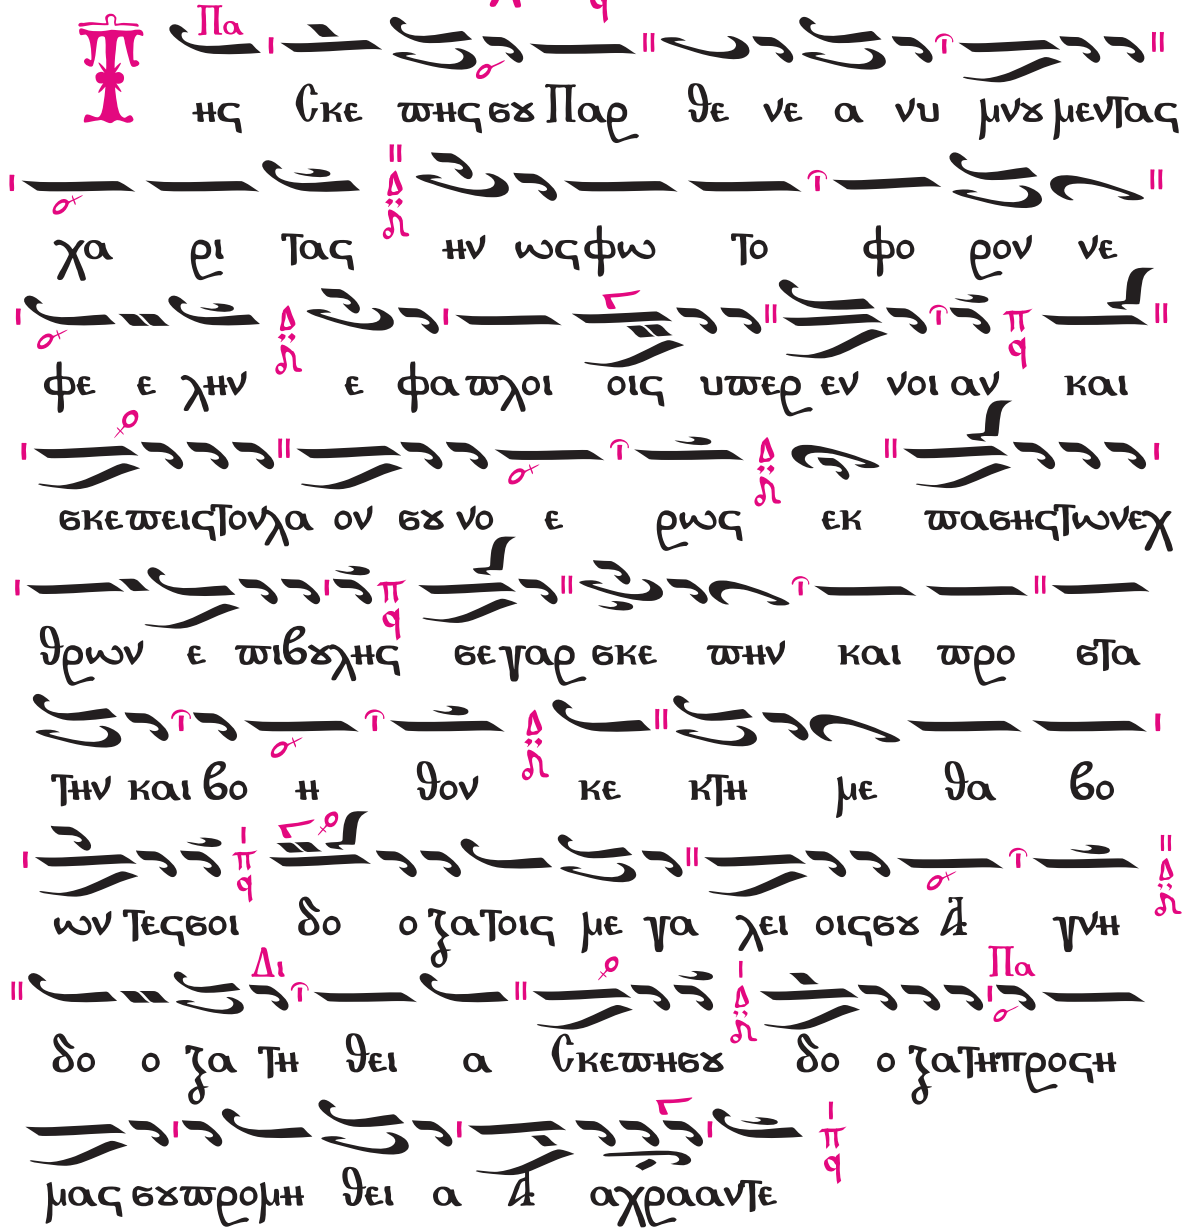 Πα
Της Σκε πης σȣ Παρ θε νε α νυ μνȣ μεντας
χα ρι τας ην ως φω το φο ρον νε
φε ε λην ε φα πλοι οις υπερ εν νοι αν και
σκεπεις τον λα ον σȣ νο ε ρως εκ πασης των εχ
θρων ε πιβȣλης σε γαρ σκε πην και προ στα
την και βο η θον κε κτη με θα βο
ων τες σοι δο ο ζα τοις με γα λει οις σȣ Α γνη
Δι Πα
δο ο ζα τη θει α Σκεπη σȣ δο ο ζα τη προς η
μας σȣ προμη θει α Α αχρααντε